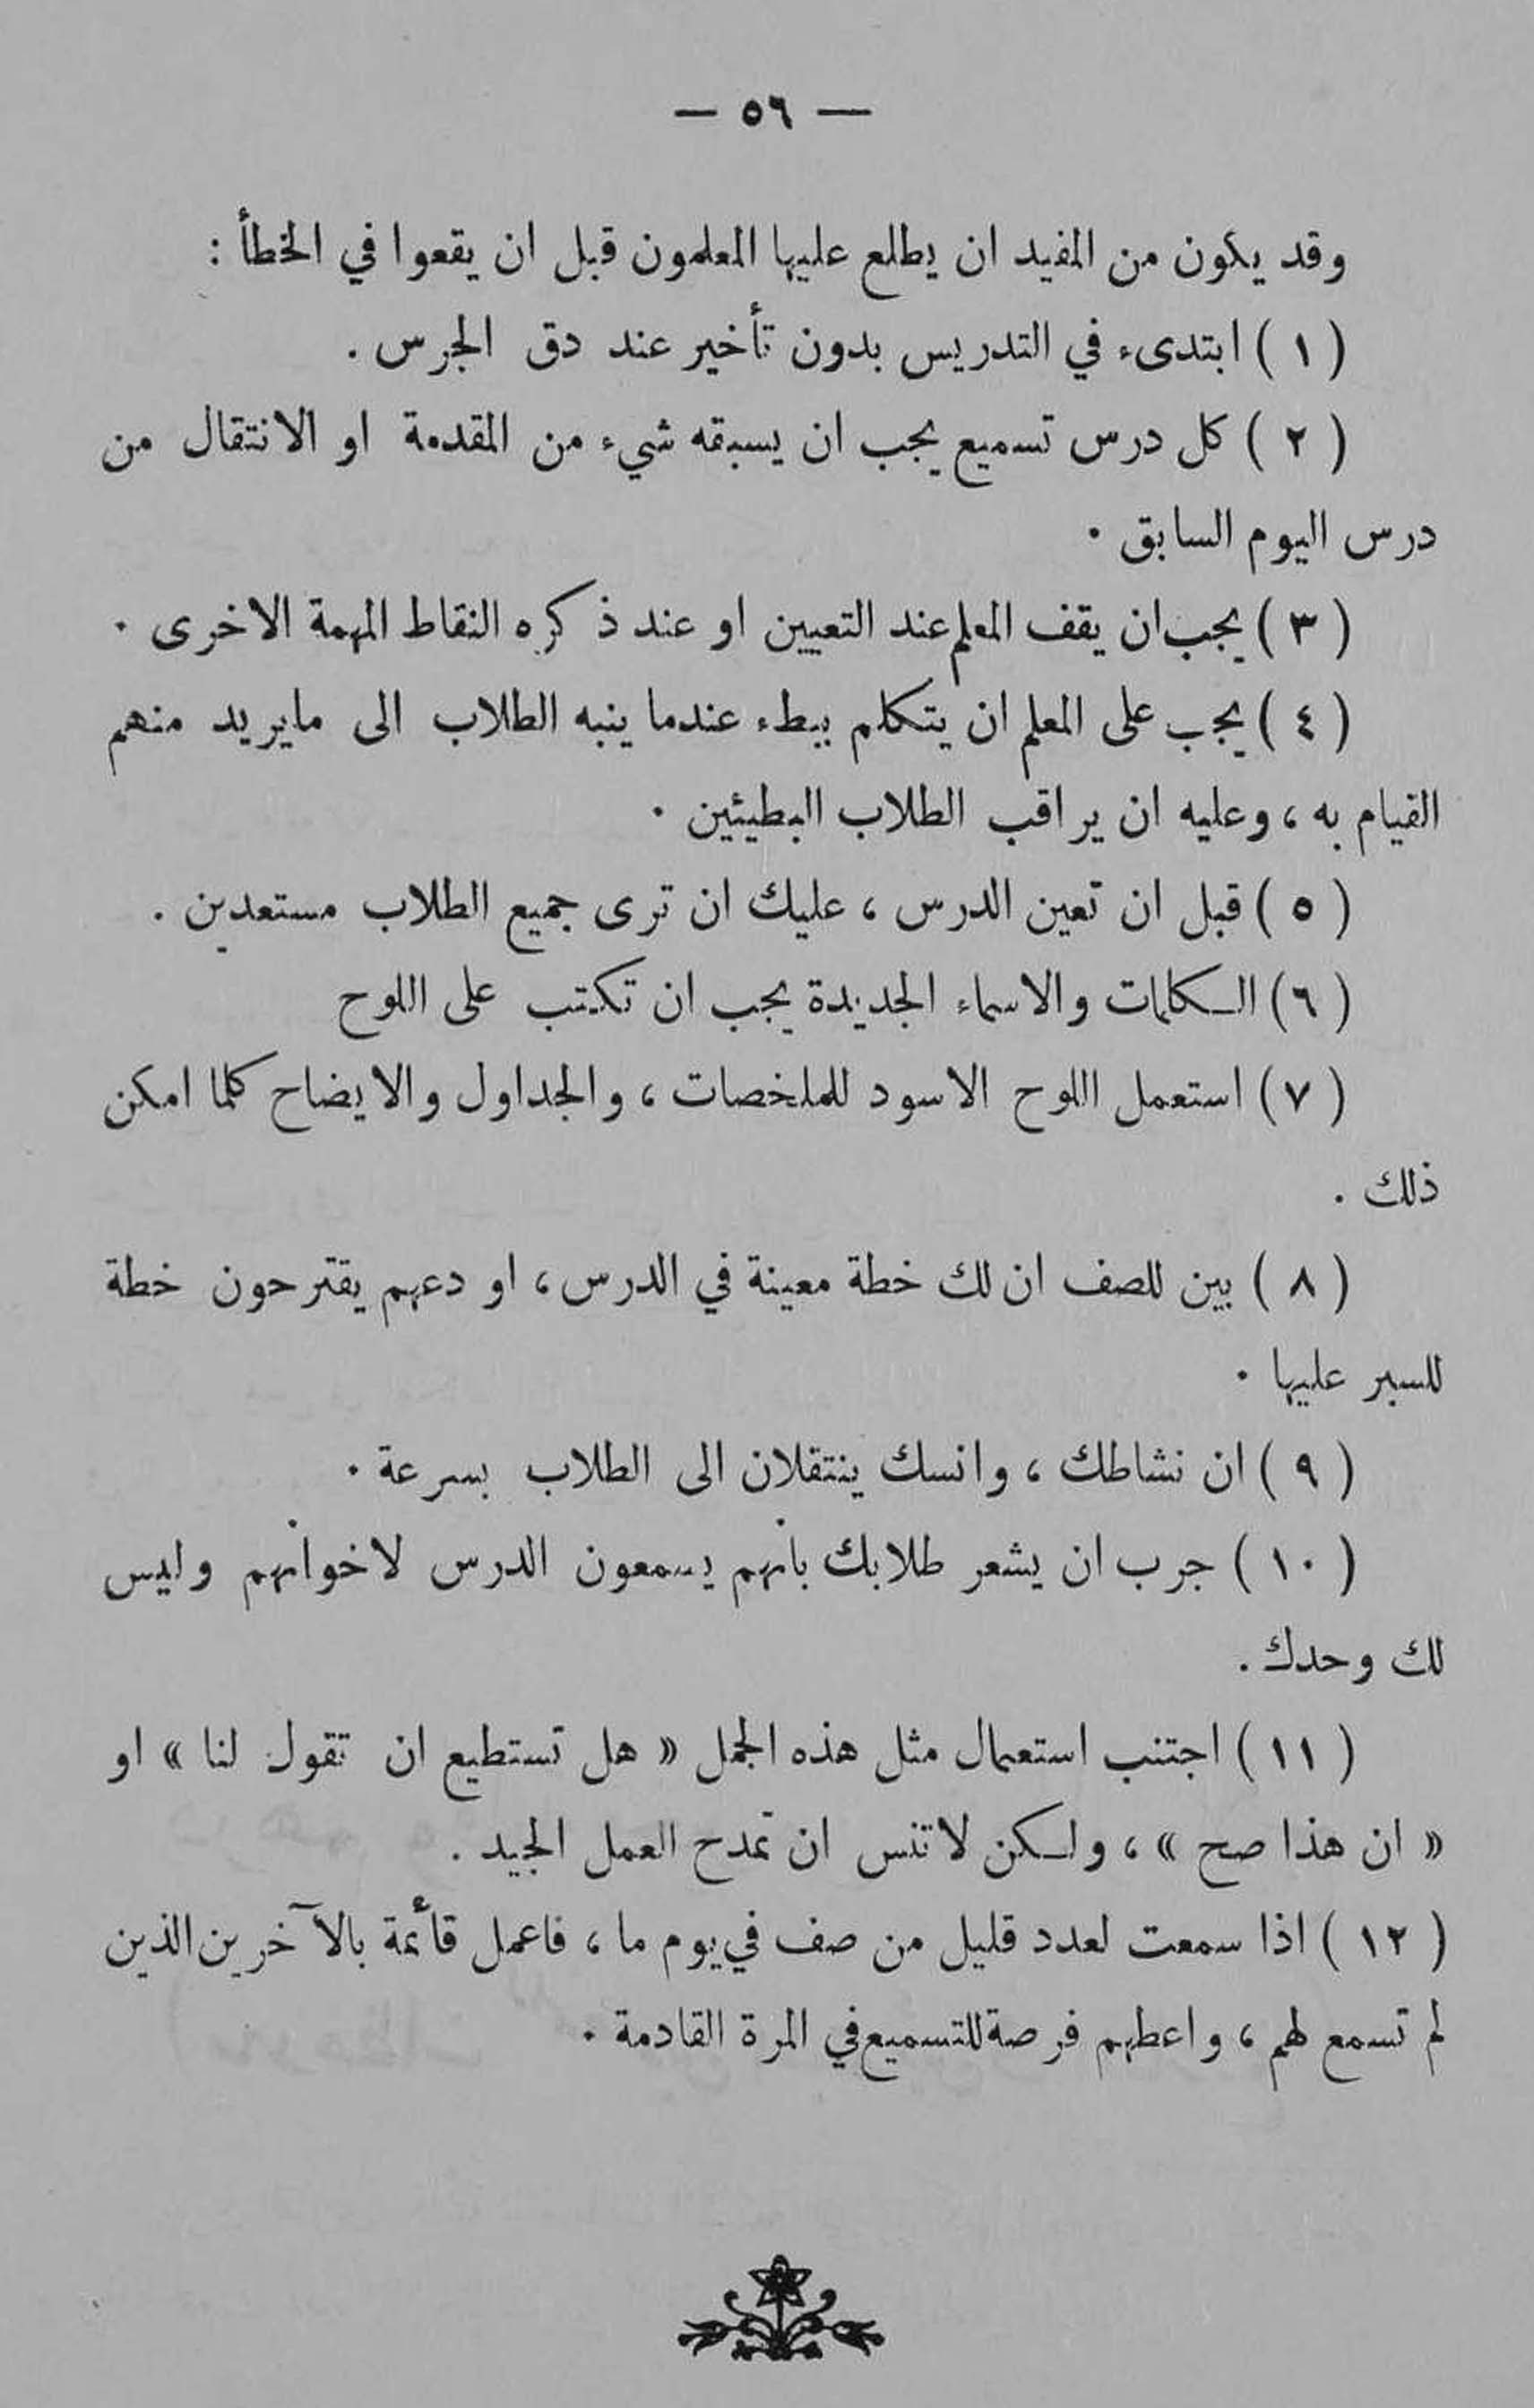 — ٥٦ —
وقد يكون من المفيد ان يطلع عليها المعلمون قبل ان يقعوا في الخطأ :
( ١ ) ابتدىء في التدريس بدون تأخير عند دق الجرس .
( ٢ ) كل درس تسميع يجب ان يسبقه شيء من المقدمة او الانتقال من
درس اليوم السابق .
( ٣ ) يجب ان يقف المعلم عند التعيين او عند ذكره النقاط المهمة الاخرى .
( ٤ ) يجب على المعلم ان يتكلم ببطء عندما ينبه الطلاب الى مايريد منهم
القيام به ، وعليه ان يراقب الطلاب البطيئين .
( ٥ ) قبل ان تعين الدرس ، عليك ان ترى جميع الطلاب مستعدين .
( ٦ ) الكلمات والاسماء الجديدة يجب ان تكتب على اللوح
( ٧ ) استعمل اللوح الاسود للملخصات ، والجداول والايضاح كلما امكن
ذلك .
( ٨ ) بين للصف ان لك خطة معينة في الدرس ، او دعهم يقترحون خطة
للسير عليها .
( ٩ ) ان نشاطك ، وانسك ينتقلان الى الطلاب بسرعة .
( ١٠ ) جرب ان يشعر طلابك بانهم يسمعون الدرس لاخوانهم وليس
لك وحدك .
( ١١ ) اجتنب استعمال مثل هذه الجمل « هل تستطيع ان تقول لنا » او
« ان هذا صح » ، ولكن لاتنس ان تمدح العمل الجيد .
( ١٢ ) اذا سمعت لعدد قليل من صف في يوم ما ، فاعمل قأئمة بالآخرين الذين
لم تسمع لهم ، واعطهم فرصة للتسميع في المرة القادمة .